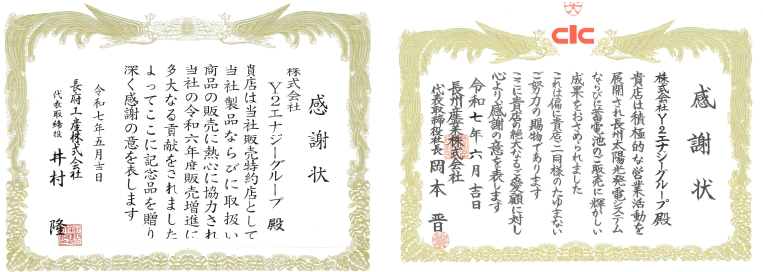 感謝状
株式会社
Y2エナジーグループ 殿
貴店は当社販売特約店として
当社製品ならびに取扱い
商品の販売に熱心に協力され
当社の令和六年度販売増進に
多大なる貢献をされました
よってここに記念品を贈り
深く感謝の意を表します
令和七年五月吉日
長府工産株式会社
代表取締役 井村 隆
CIC
感謝状
株式会社Y2エナジーグループ殿
貴店は積極的な営業活動を
展開され長州太陽光発電システム
ならびに蓄電池のご販売に輝かしい
成果をおさめられました
これは偏に貴店ご一同様のたゆまない
ご努力の賜物であります
ここに貴店の絶大なるご愛顧に対し
心より感謝の意を表します
令和七年六月吉日
長州産業株式会社
代表取締役社長 岡本 晋